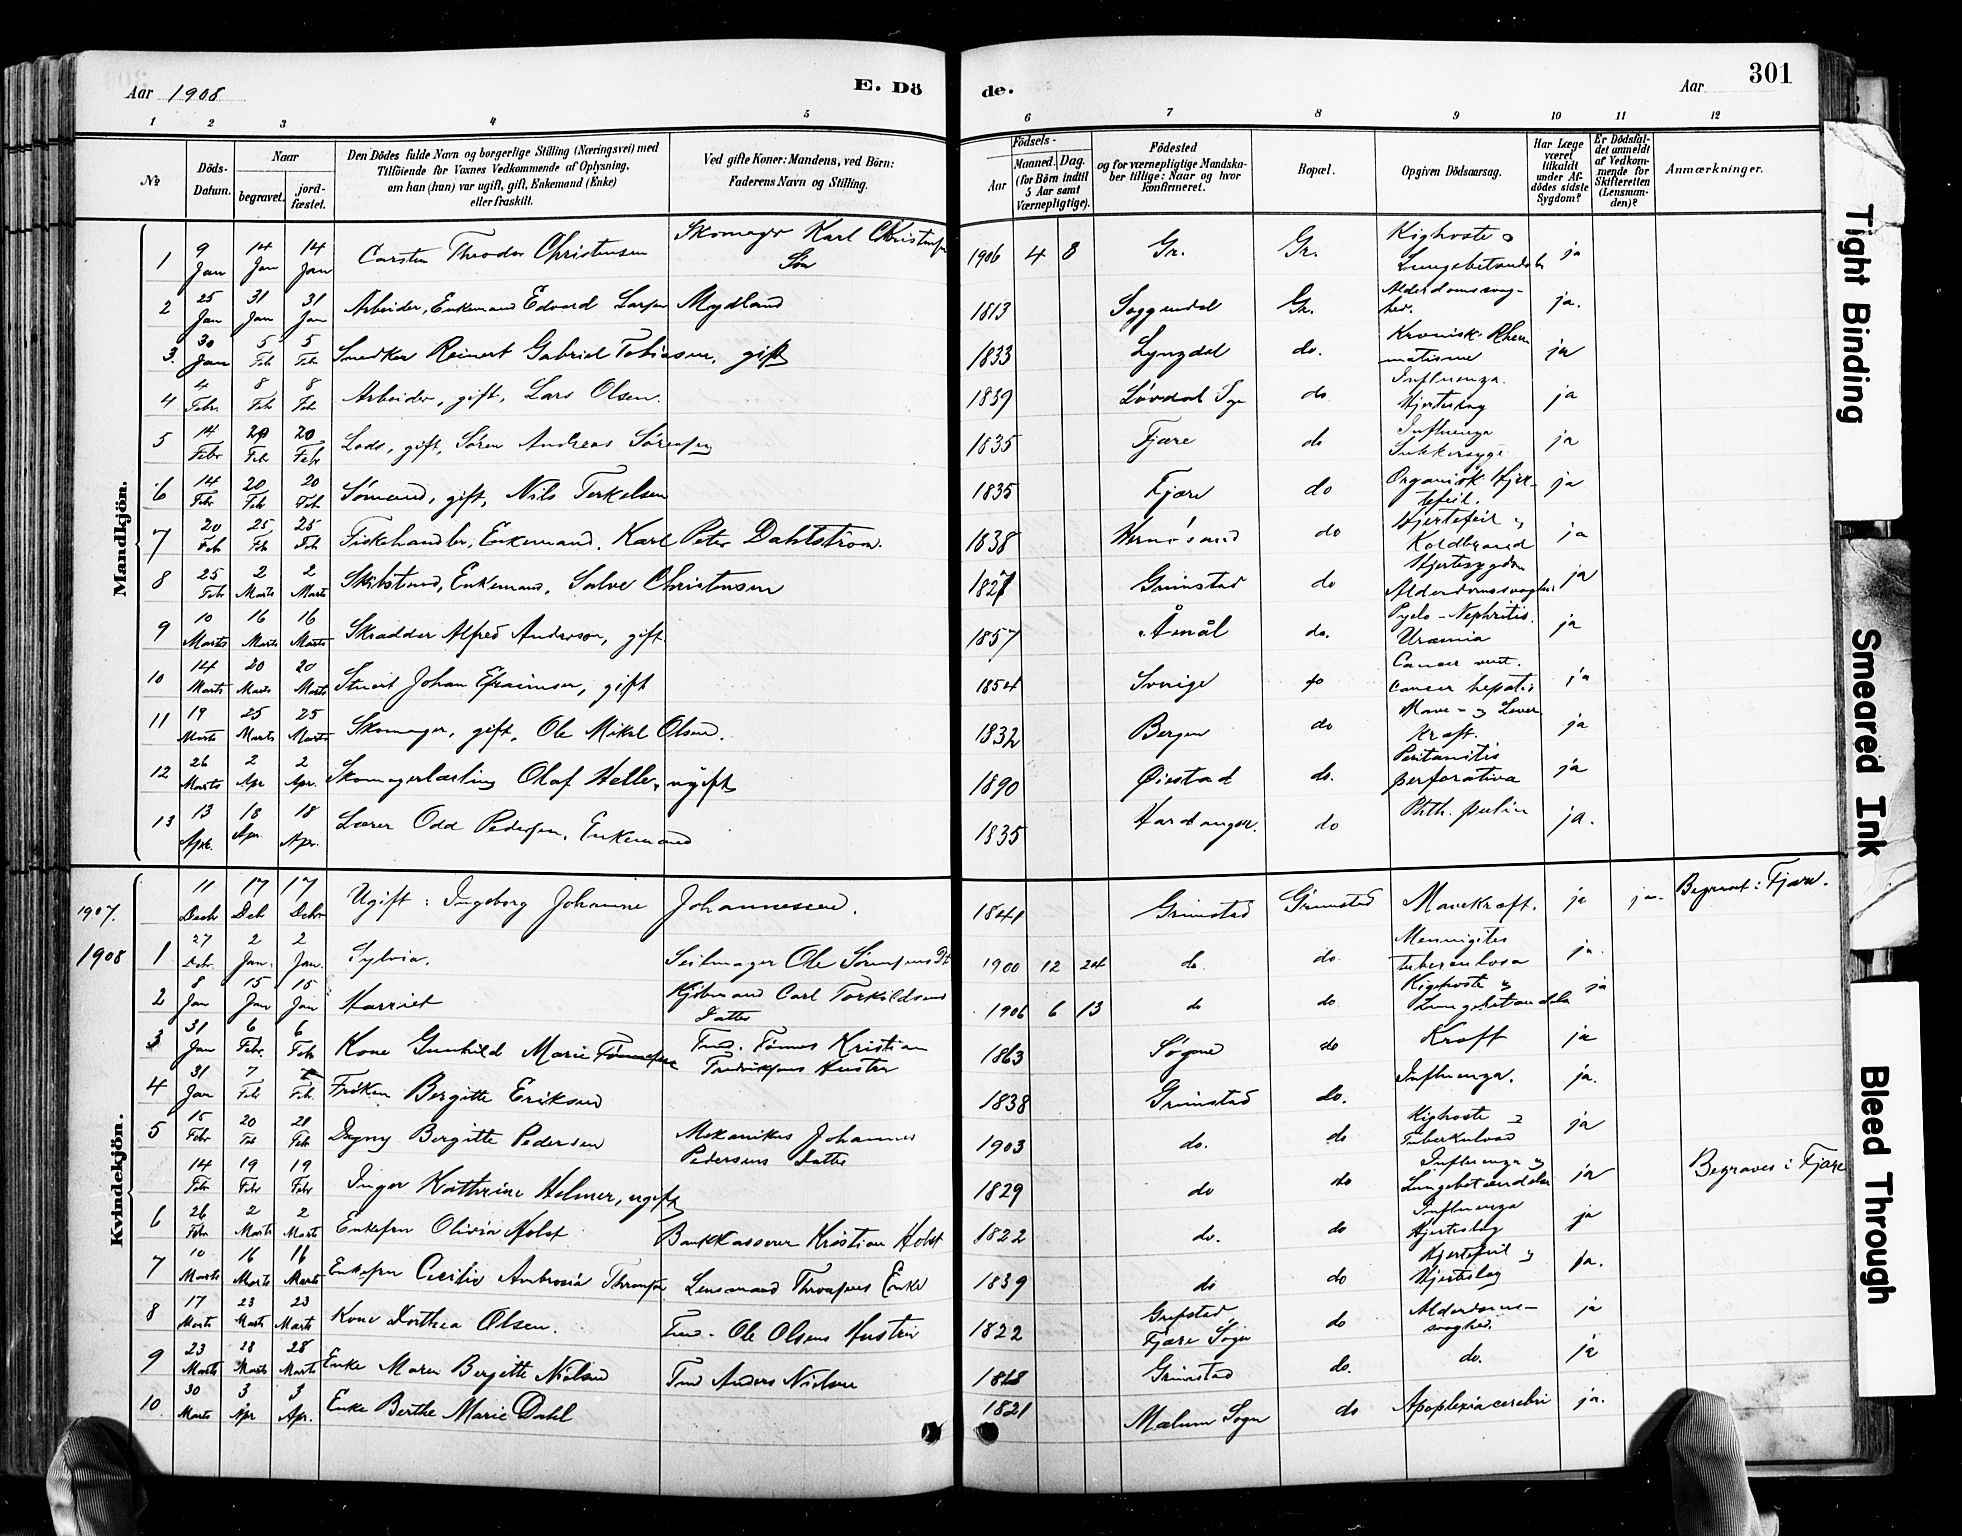 Aar 1908 E. Dö de. Aar 301
1 2 3 4 5 6 7 8 9 10 11 12
№ Döds-Datum. Naar begravet. jord-fæstet. Den Dödes fulde Navn og borgerlige Stilling (Næringsvei) med Tilföiende for Voxnes Vedkommende af Oplysning, om han (hun) var ugift, gift, Enkemand (Enke) eller fraskilt. Ved gifte Koner: Mandens, ved Börn: Faderens Navn og Stilling. Födsels- Aar Maaned. Dag. (for Börn indtil 5 Aar samt Værnepligtige). Födested og for værnepligtige Mandskaber tillige: Naar og hvor konfirmeret. Bopæl. Opgiven Dödsaarsag. Har Læge været tilkaldt under Afdödes sidste Sygdom? Er Dödsfaldet anmeldt af Vedkommende for Skifteretten (Lensmanden)? Anmærkninger.
Mandkjön.
1 9 Jan 14 Jan 14 Jan Carsten Theodor Christensen Skomager Karl Christensen Søn 1906 4 8 Gr. Gr. Kighoste & Lungebetændels ja
2 25 Jan 31 Jan 31 Jan Arbeider, Enkemand Edvard Larsen Mydland 1813 Soggendal Gr. Alderdomssvaghed. ja.
3. 30 Jan 5 Feb 5 Feb Snedker Reinert Gabriel Tobiasen, gift 1833 Lyngdal do. Kronisk Rheumatisme ja
4 4 Febr. 8 Feb 8 Feb Arbeider, gift, Lars Olsen. 1839 Løvdal Sogn do Influenza. Hjerteslag ja
5 14 Febr 20 Feb 20 Febr Lods, gift, Søren Andreas Sørensen 1835 Fjære do Influenza Sukkersyge ja
6 14 Febr 20 Feb 20 Feb Sømand, gift, Nils Terkelsen 1835 Fjære do Organisk Hjertefeil. ja
7 20 Feb 25 Feb 25 Feb Fiskehandler, Enkemand, Karl Peter Dahlstrøm. 1838 Hernøsand do Hjertefeil og Koldbrand ja
8 25 Feb 2 Marts 2 Marts Enkemand, Salve Christensen 1827 Grimstad do Hjertesygdom Alderdomssvaghed ja
9 10 Marts 16 Marts 16 Marts Skrædder Alfred Anderson, gift 1857 Åmål do. Pyelo-Nephritis. Uræmia ja
10 14 Marts 20 Marts 20 Marts Stuert Johan Efraimsen, gift 1854 Sverige do Cancer vent. cancer hepatis ja
11 19 Marts 25 Marts 25 Marts Skomager, gift, Ole Mikal Olsen. 1832 Bergen do Mave- og Lever Kræft. ja
12 26 Marts 2 Apr 2 Apr. Skomagerlærling Olaf Helle, ugift 1890 Øiestad do. Peritonitis perforativa ja
13 13 Apr. 18 Apr. 18 Apr. Lærer Odd Pedersen, Enkemand 1835 Hardanger. do Phth. pulm ja.
Kvindekjön.
1907. 11 Decbr 17 Deb 17 Decbr Ugift: Ingeborg Johanne Johannessen. 1841 Grimstad Grimstad Mavekræft. ja ja. Begravet i Fjære.
1908 1 27 Dcbr. 2 Jan. 2 Jan. Sylvia. Seilmager Ole Sørensens Dt 1900 12 24 do. do. Menningites tuberculosa ja.
2 8 Jan 15 Jan 15 Jan Harriet Kjøbmand Carl Torkildsens Datter 1906 6 13 do do Kighoste og Lungebetændelse ja
3 31 Jan 6 Febr. 6 Feb Kone Gunhild Marie Tmd. Tønnes Kristian Fredriksens Hustru 1863 Søgne do Kræft ja
4 31 Jan 7 Feb 7 Feb Frøken Bergitte Eriksen 1838 Grimstad do. Influenza. ja.
5 15 Febr 20 Feb 20 Feb Dagny Bergitte Pedersen Mekanikus Johannes Pedersens Datter 1903 do. do Kighoste og Tuberkulose ja
14 Feb 19 Febr 19 Feb Inger Kathrine Helmer, ugift 1829 do do Influenza og Lungebetændelse ja Begraves i Fjære
6 26 Febr 2 Marts 2 Marts Enkefru Olivia Holst Bankkasserer Kristian Holst 1822 do. do Influenza Hjerteslag ja
7 10 Marts 16 Marts 16 Marts Enkefru Cecilie Ambrosia Lensmand Enke 1839 do do Hjertefeil og Hjerteslag ja.
8 17 Marts 23 Marts 23 Marts Kone Dorthea Olsen. Tmd. Ole Olsens Hustru 1822 Grefstad Fjære Sogn do Alderdomssvaghed. ja
9 23 Marts 28 Marts 28 Marts Enke Maren Bergitte Nielsen Tmd Anders Nielsen 1818 Grimstad do. do. ja
10 30 Marts 3 Apr 3 Apr. Enke Berthe Marie Dahl 1821 Mælum Sogn do Apoplexia cerebri ja.
Tight Binding
Smeared Ink
Bleed Through